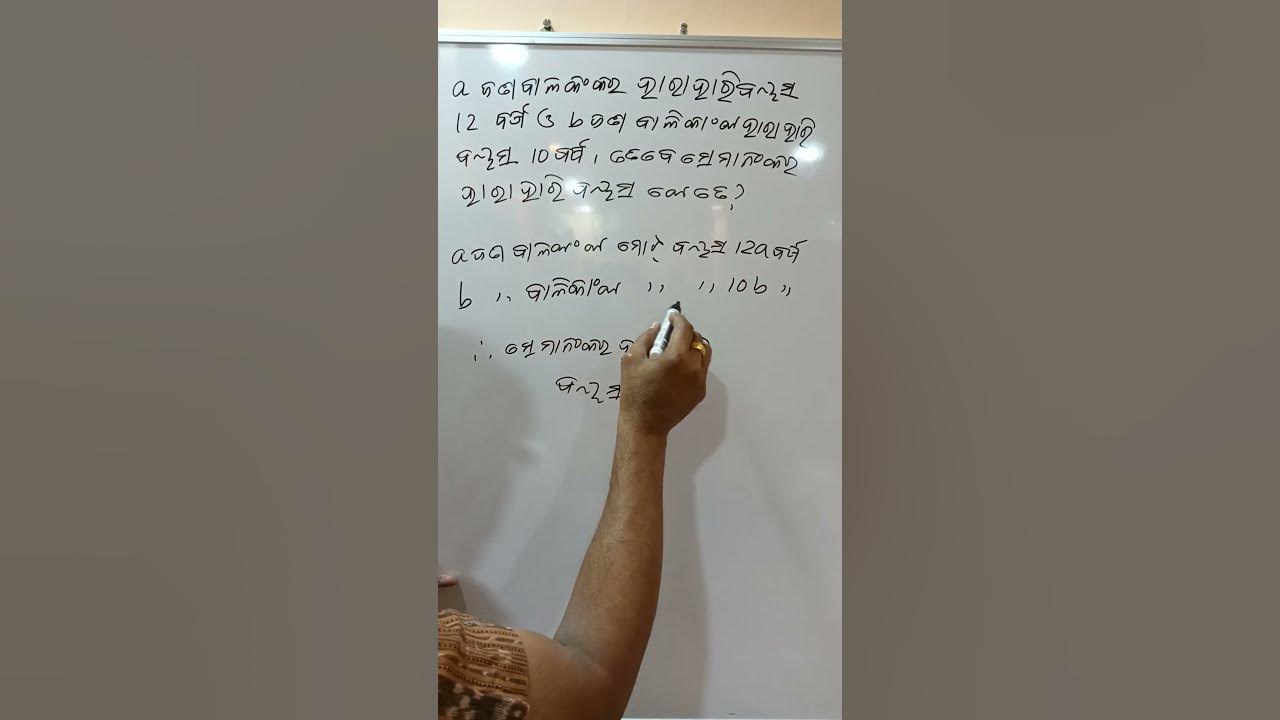 a ଜଣ ବାଳକଂକର ହାରାହାରି ବୟସ
12 ବର୍ଷ ଓ b ଜଣ ବାଳିକାଂକ ହାରାହାରି
ବୟସ 10 ବର୍ଷ, ତେବେ ସେମାନଂକର
ହାରାହାରି ବୟସ କେତେ?
a ଜଣ ବାଳକଂକ ମୋଟ ବୟସ 12a ବର୍ଷ
b ,, ବାଳିକାଂକ ,, ,, 10b ,,
∴ ସେମାନଂକର
ବୟସ